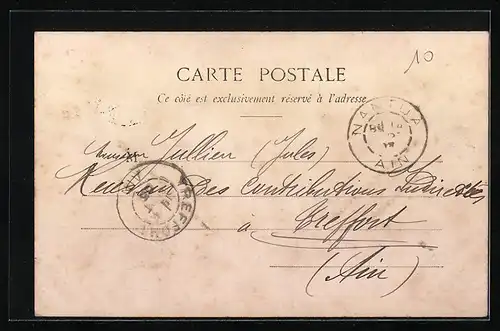 10
CARTE POSTALE
Ce côté est exclusivement réservé à l'adresse
NANTUA
AIN
Monsieur Jullien (Jules)
Receveur des Contributions Indirectes
TREFFORT
à Treffort
(Ain)